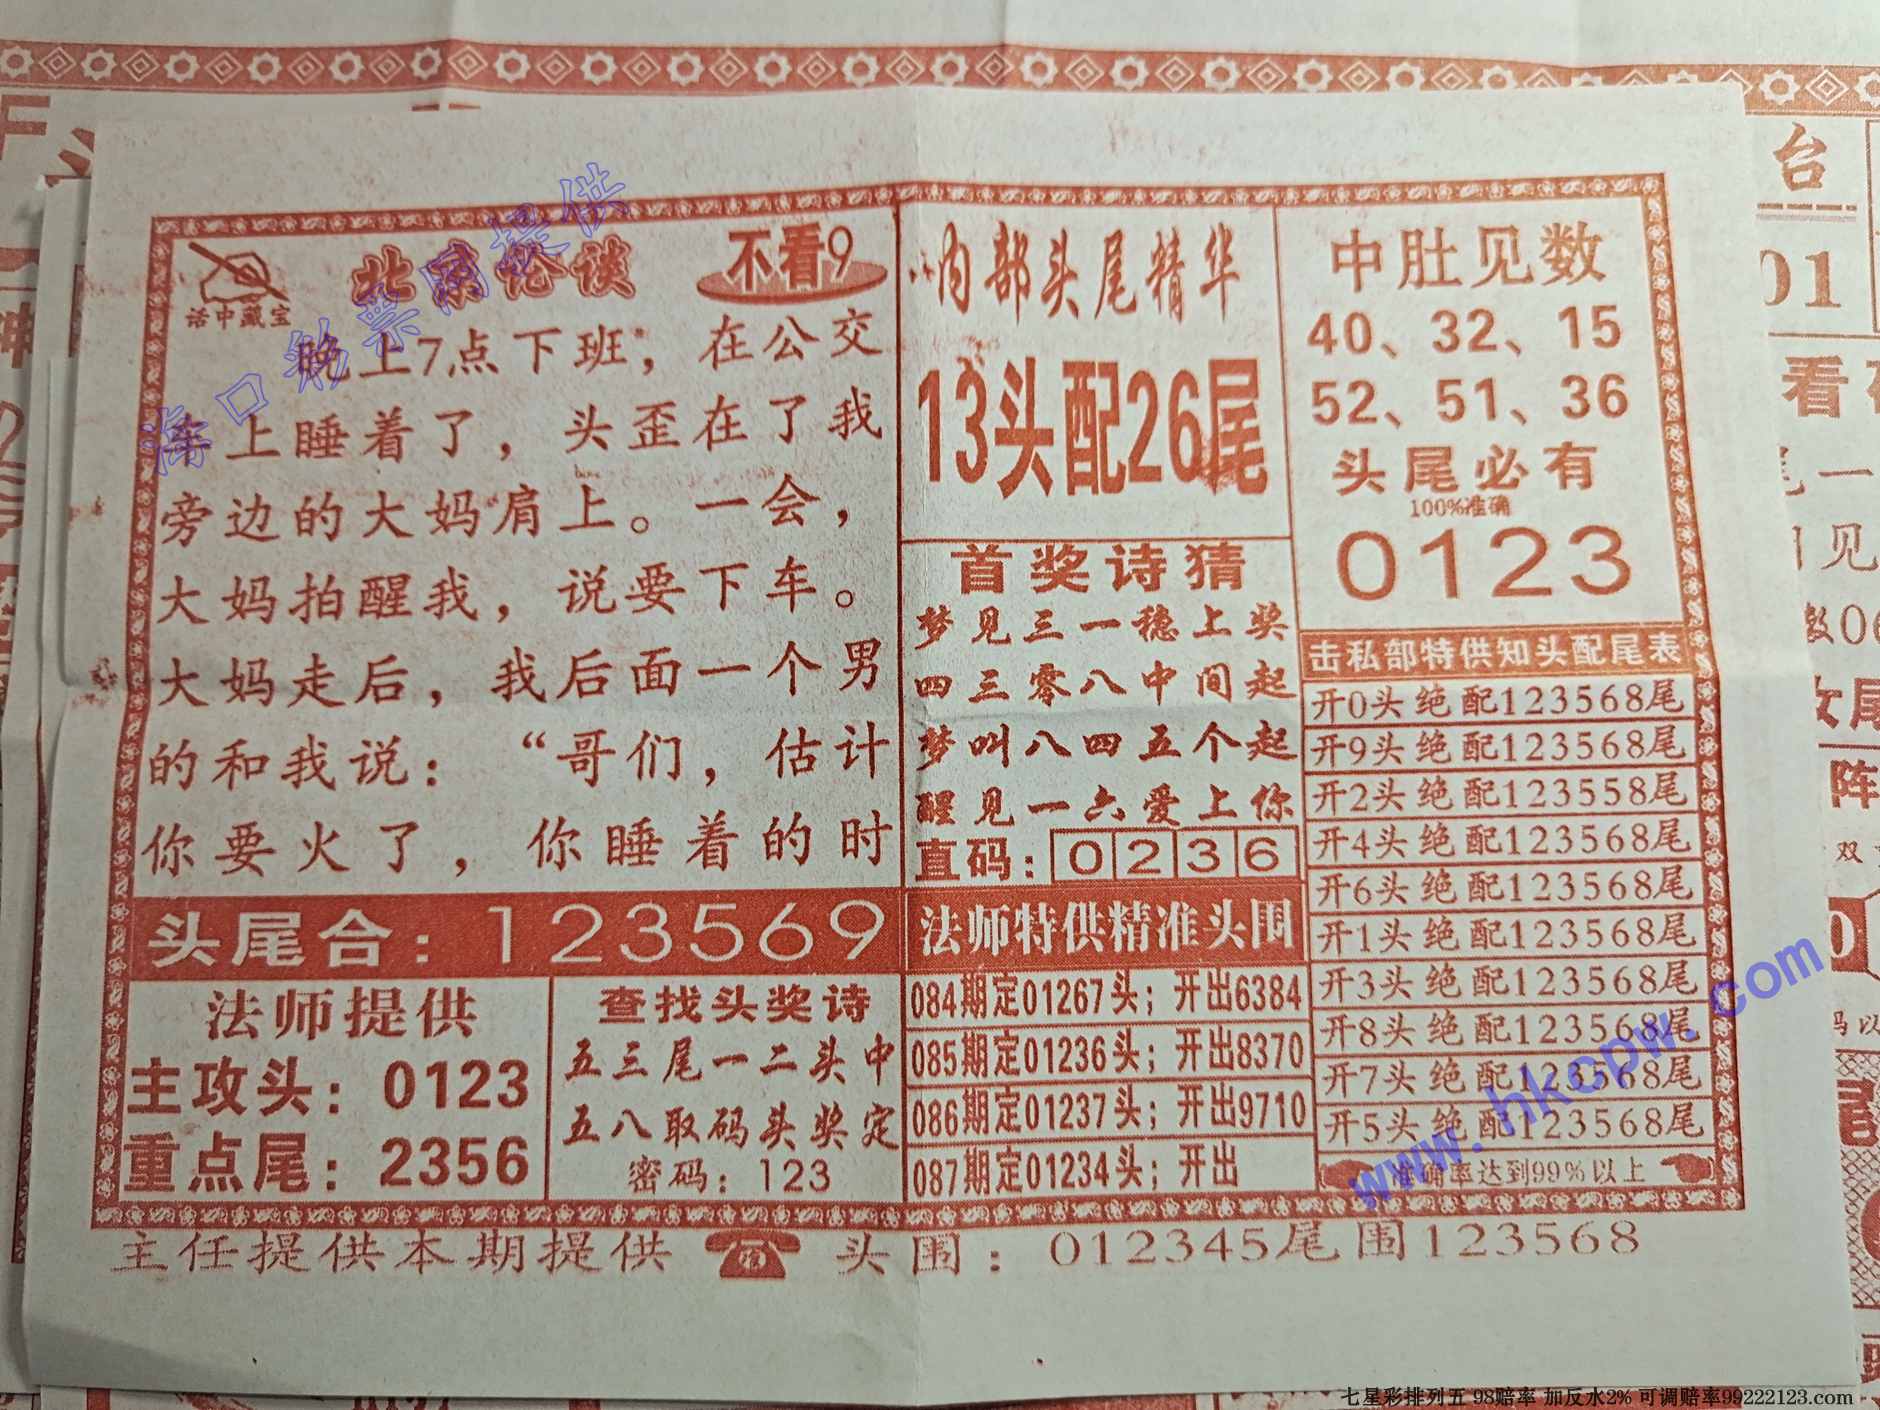 海口彩票网提供
话中藏宝
北京论谈
不看9
晚上7点下班，在公交
车上睡着了，头歪在了我
旁边的大妈肩上。一会，
大妈拍醒我，说要下车。
大妈走后，我后面一个男
的和我说：“哥们，估计
你要火了，你睡着的时
头尾合：123569
法师提供
主攻头：0123
重点尾：2356
查找头奖诗
五三尾一二头中
五八取码头奖定
密码：123
内部头尾精华
13头配26尾
首奖诗猜
梦见三一稳上奖
四三零八中间起
梦叫八四五个起
醒见一六爱上你
直码：0236
法师特供精准头围
084期定01267头；开出6384
085期定01236头；开出8370
086期定01237头；开出9710
087期定01234头；开出
中肚见数
40、32、15
52、51、36
头尾必有
100%准确
0123
击私部特供知头配尾表
开0头绝配123568尾
开9头绝配123568尾
开2头绝配123558尾
开4头绝配123568尾
开6头绝配123568尾
开1头绝配123568尾
开3头绝配123568尾
开8头绝配123568尾
开7头绝配123568尾
开5头绝配123568尾
准确率达到99%以上
主任提供本期提供 头围：012345尾围123568
台
01
看
尾一
见
数06
阵
双
码以
www.hkcpw.com
七星彩排列五 98赔率 加反水2% 可调赔率99222123.com